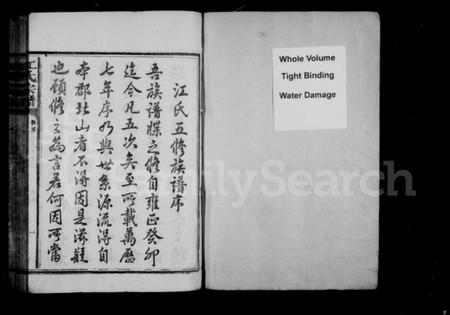 江氏五修族譜序
吾族譜牒之修自雍正癸卯
迄今凡五次矣至所載萬歷
七年序與世系源流得自
本郡北山者不得因是滋疑
也顧修之為言若何因所當
江氏宗譜
Whole Volume
Tight Binding
Water Damage
FamilySearch